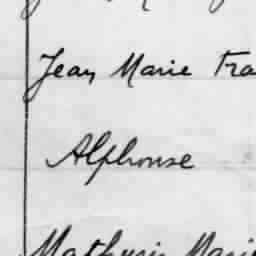 Jean Marie Fra
Alphonse
Mathurin Marie